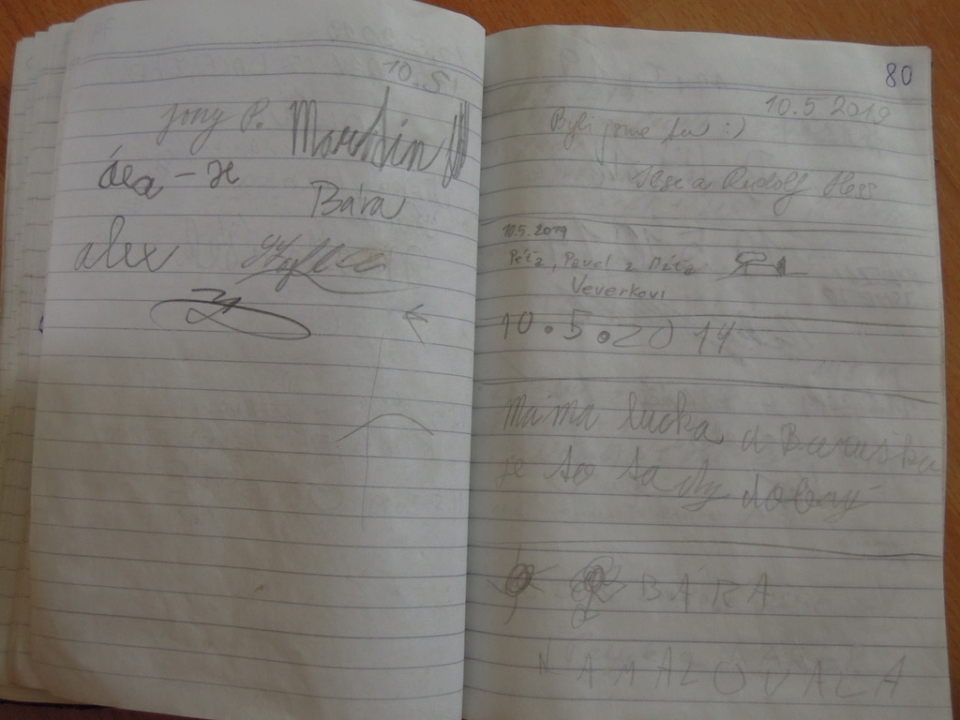 10.5
Jony P. Martin
Bára
alex
80
10.5 2019
Byli jsme tu :)
Ilse a Rudolf Hess
10.5.2019
Péťa, Pavel z Péťa
Veverkovi
10.5.2019
Máma lucka a Baruška
je to tady dobrý
BARA
NAMALOVALA